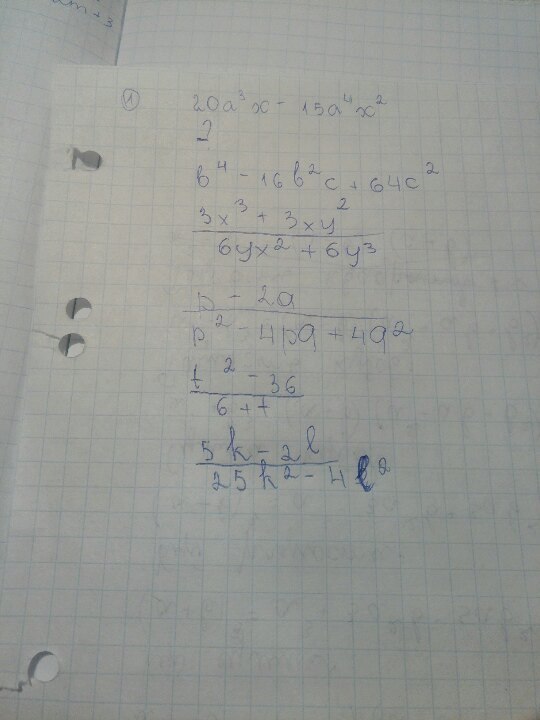 2m+3
① 20a³x - 15a⁴x²
2
b⁴ - 16b²c + 64c²
3x³ + 3xy²
6yx² + 6y³
p - 2q
p² - 4pq + 4q²
t² - 36
6 + t
5k - 2l
25k² - 4l²